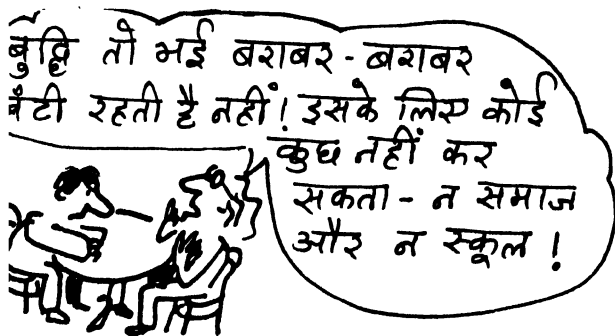 बुद्धि तो भई बराबर - बराबर
बँटी रहती है नहीं! इसके लिए कोई
कुछ नहीं कर
सकता - न समाज
और न स्कूल!